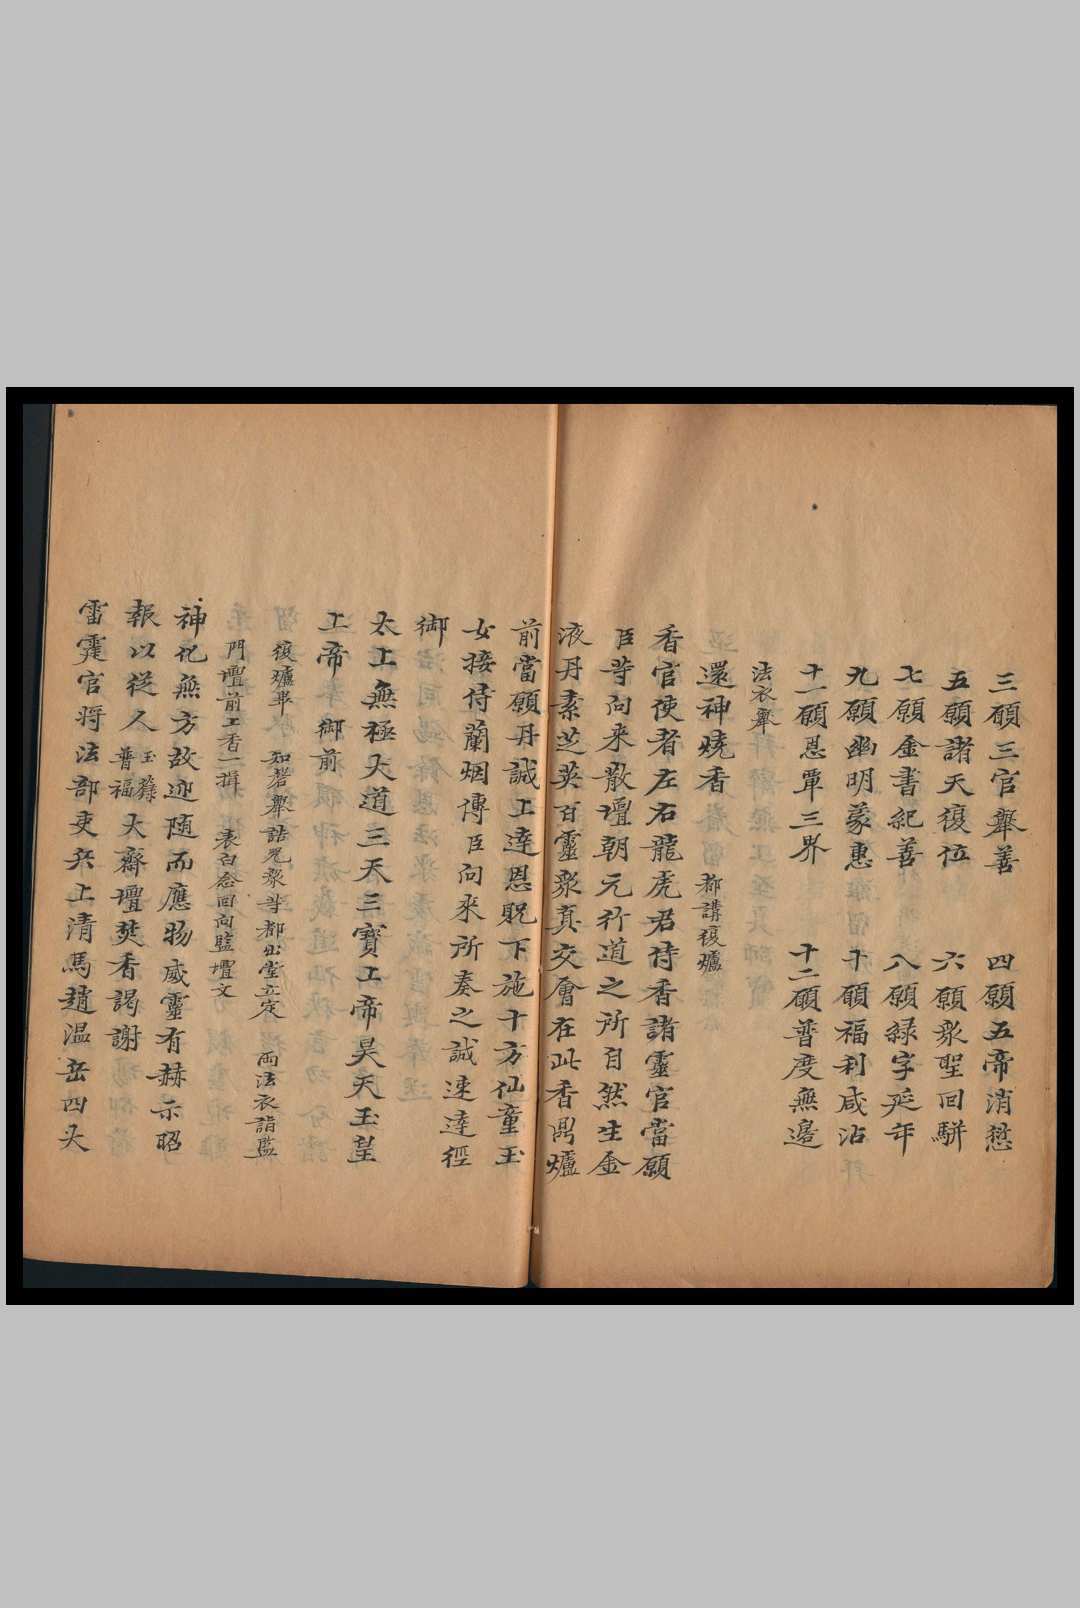 三願三官舉善　四願五帝消愆
五願諸天復位　六願眾聖回駢
七願金書紀善　八願綠字延年
九願幽明蒙惠　十願福利咸沾
十一願恩覃三界　十二願普度無邊
法衣舉
還神燒香　都講復爐
香官使者左右龍虎君侍香諸靈官當願
臣等向來散壇朝元行道之所自然生金
液丹素芝英百靈眾真交會在此香鼎爐
前當願丹誠上達恩貺下施十方仙童玉
女接侍蘭烟傳臣向來所奏之誠速達徑
御
太上無極大道三天三寶上帝昊天玉皇
上帝　御前
復爐畢　知磬舉誥咒眾等都出堂立定　兩法衣詣監
門壇前上香一揖　表白念回向監壇文
神化無方故迎隨而應物威靈有赫示昭
報以從人玉籙普福大齋壇焚香謁謝
雷霆官將法部吏兵上清馬趙温岳四大